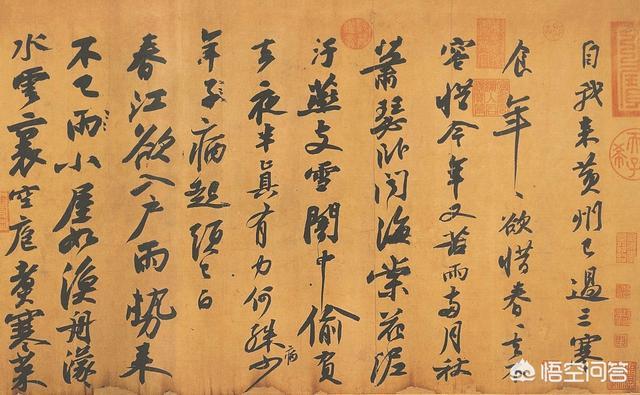 自我來黃州已過三寒
食年〻欲惜春〻去不
容惜今年又苦雨兩月秋
蕭瑟臥聞海棠花泥
汙燕支雪闇中偷負
去夜半真有力何殊少
病
年子病起頭已白
春江欲入戶雨勢來
不已雨小屋如漁舟濛〻
水雲裏空庖煮寒菜
悟空问答